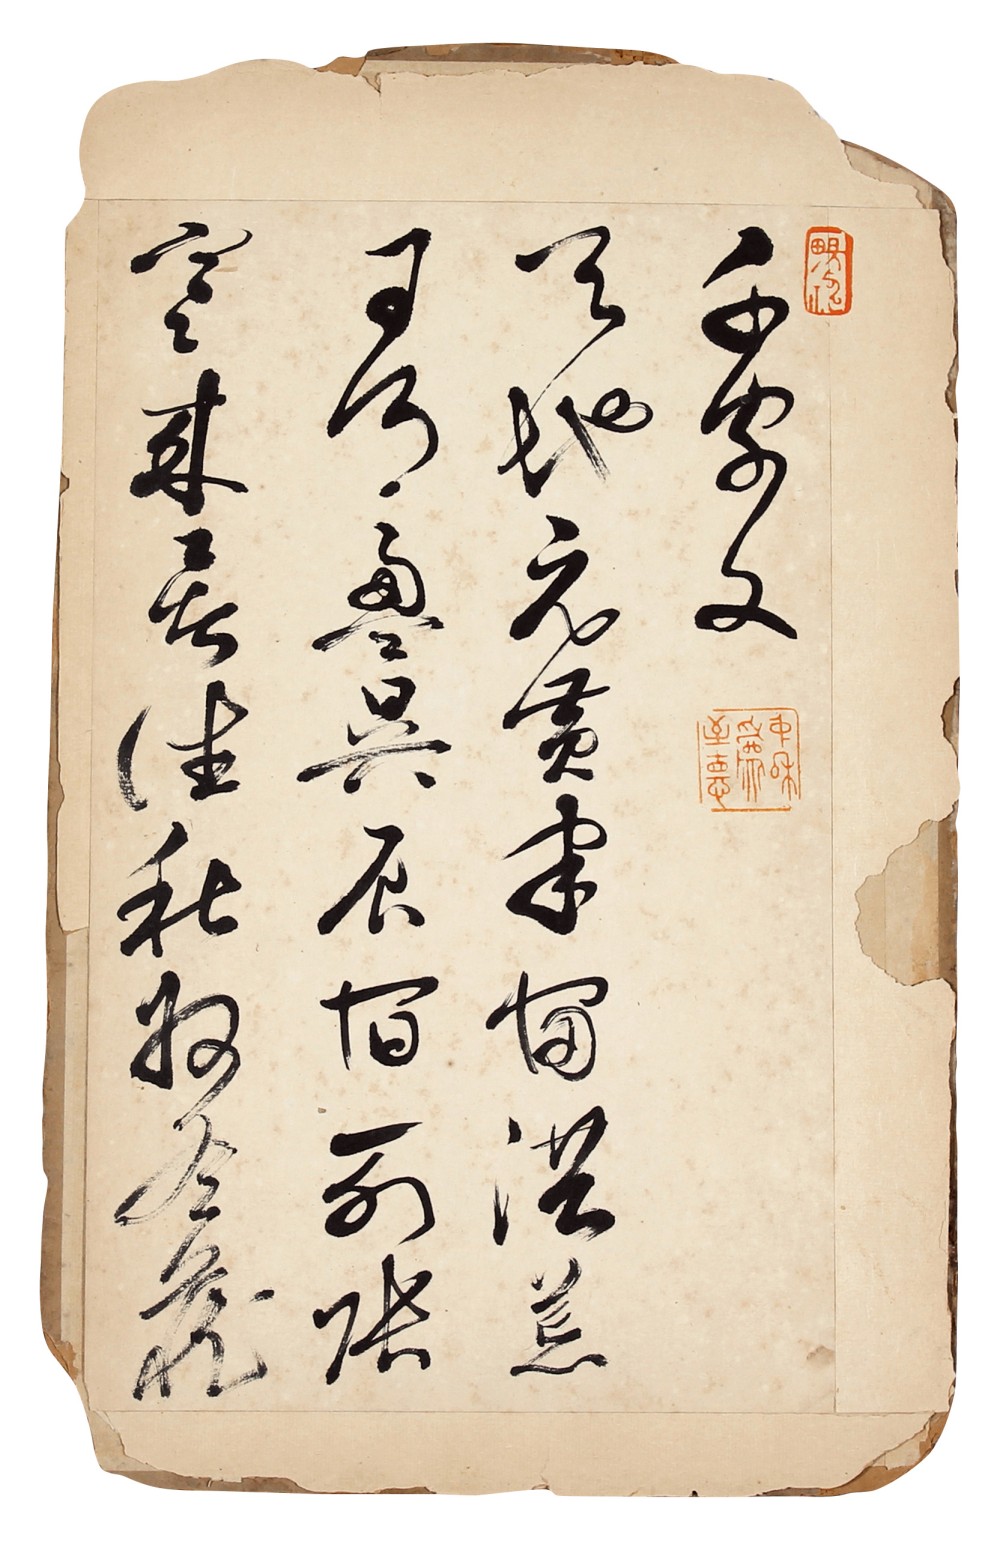 千字文
天地玄黄宇宙洪荒
日月盈昃辰宿列張
寒来暑往秋収冬蔵